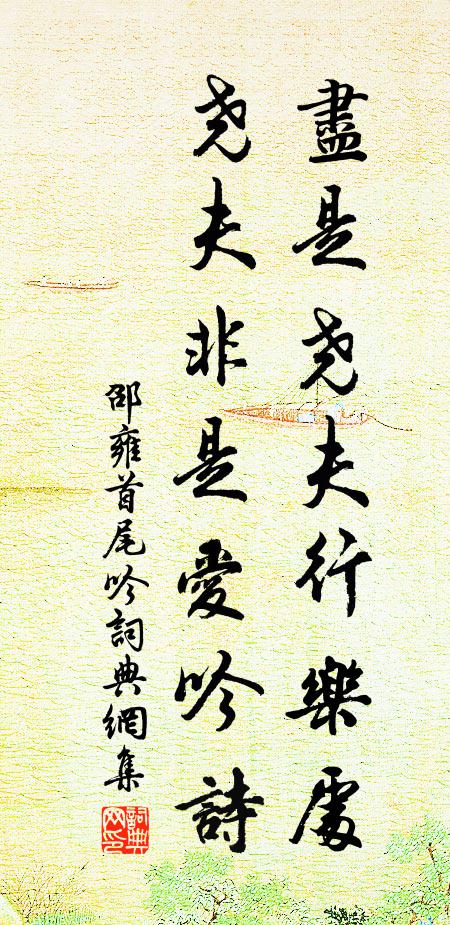 盡是尧夫行樂處
尧夫非是愛吟詩
邵雍首尾吟詞典網集
詞典网印